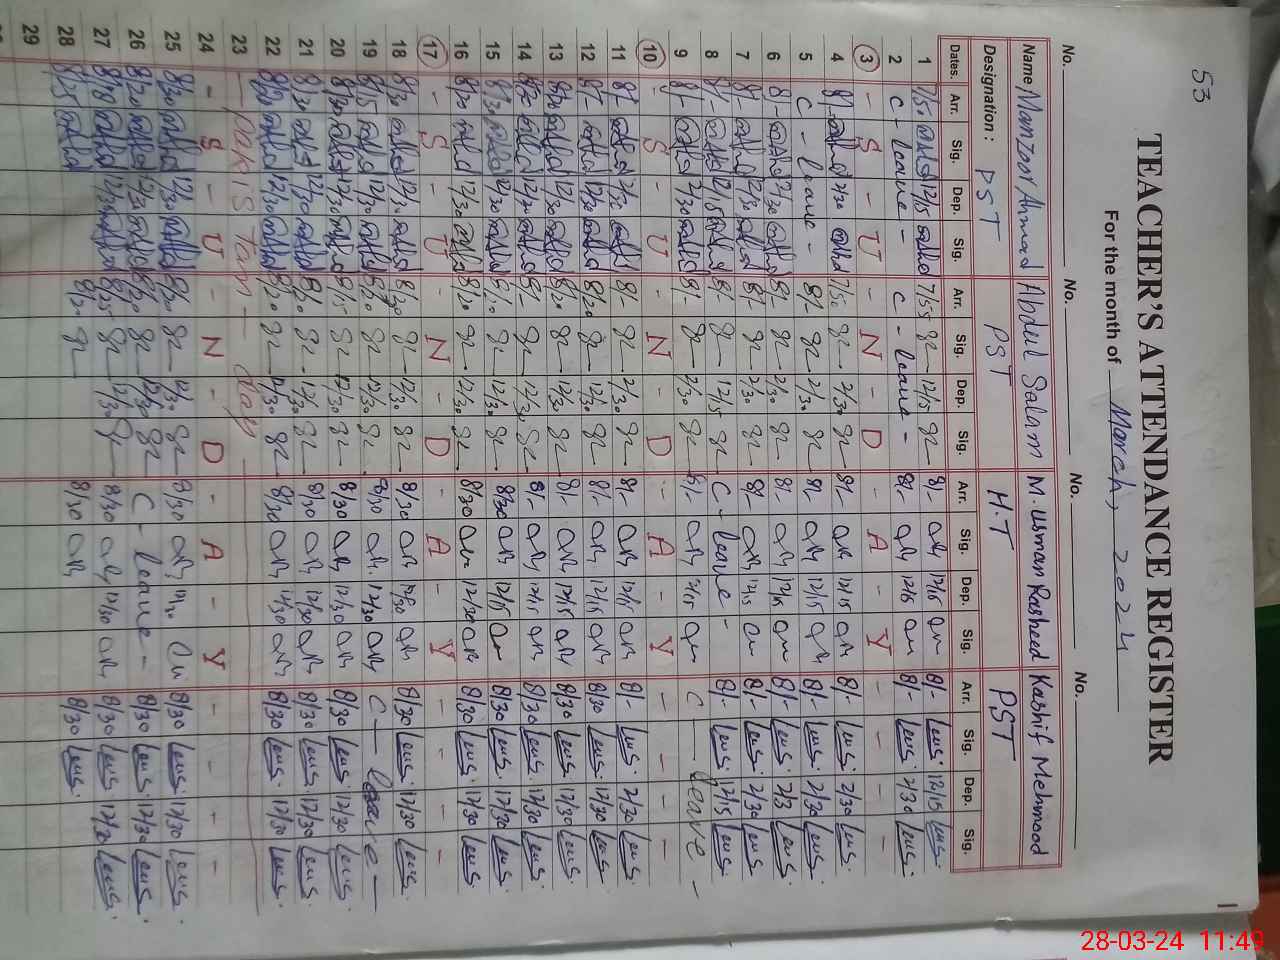 53
TEACHER'S ATTENDANCE REGISTER
For the month of March, 2024
No. No. No. No.
Name Manzoor Ahmad Abdul Salam M. usman Rasheed Kashif Mehmood
Designation: PST PST H.T PST
Dates. Arr. Sig. Dep. Sig. Arr. Sig. Dep. Sig. Arr. Sig. Dep. Sig. Arr. Sig. Dep. Sig.
1 7/50 12/15 7/55 12/15 8/- 12/15 8/- 12/15
2 C - leave - C - leave - 8/- 12/15 8/- 2/30
3 - S - U - N - D - A - Y - - -
4 8/- 2/30 7/50 2/30 8/- 12/15 8/- 2/30
5 C - leave - 8/- 2/30 8/- 12/15 8/- 2/30
6 8/- 2/30 8/- 2/30 8/- 12/15 8/- 2/3
7 8/- 2/30 8/- 2/30 8/- 12/15 8/- 2/30
8 8/- 12/15 8/- 12/15 C - leave - 8/- 12/15
9 8/- 2/30 8/- 2/30 8/- 2/15 C - leave -
10 - S - U - N - D - A - Y - - -
11 8/- 2/30 8/- 2/30 8/- 12/15 8/- 2/30
12 8/- 12/30 8/20 12/30 8/- 12/15 8/30 12/30
13 8/20 12/30 8/20 12/30 8/- 12/15 8/30 12/30
14 8/20 12/30 8/- 12/30 8/- 12/15 8/30 12/30
15 8/30 12/30 8/20 12/30 8/30 12/15 8/30 12/30
16 8/20 12/30 8/20 12/30 8/30 12/30 8/30 12/30
17 - S - U - N - D - A - Y - - -
18 8/30 12/30 8/30 12/30 8/30 12/30 8/30 12/30
19 8/15 12/30 8/20 12/30 8/30 12/30 C - leave -
20 8/30 12/30 8/15 12/30 8/30 12/30 8/30 12/30
21 8/30 12/30 8/20 12/30 8/30 12/30 8/30 12/30
22 8/20 12/30 8/20 12/30 8/30 12/30 8/30 12/30
23 - pakistan - day -
24 - S - U - N - D - A - Y - - -
25 8/30 12/30 8/20 12/30 8/30 12/30 8/30 12/30
26 8/20 12/30 8/20 12/30 C - leave - 8/30 12/30
27 8/20 12/30 8/25 12/30 8/30 12/30 8/30 12/30
28 8/25 8/20 8/30 8/30
29
28-03-24 11:49